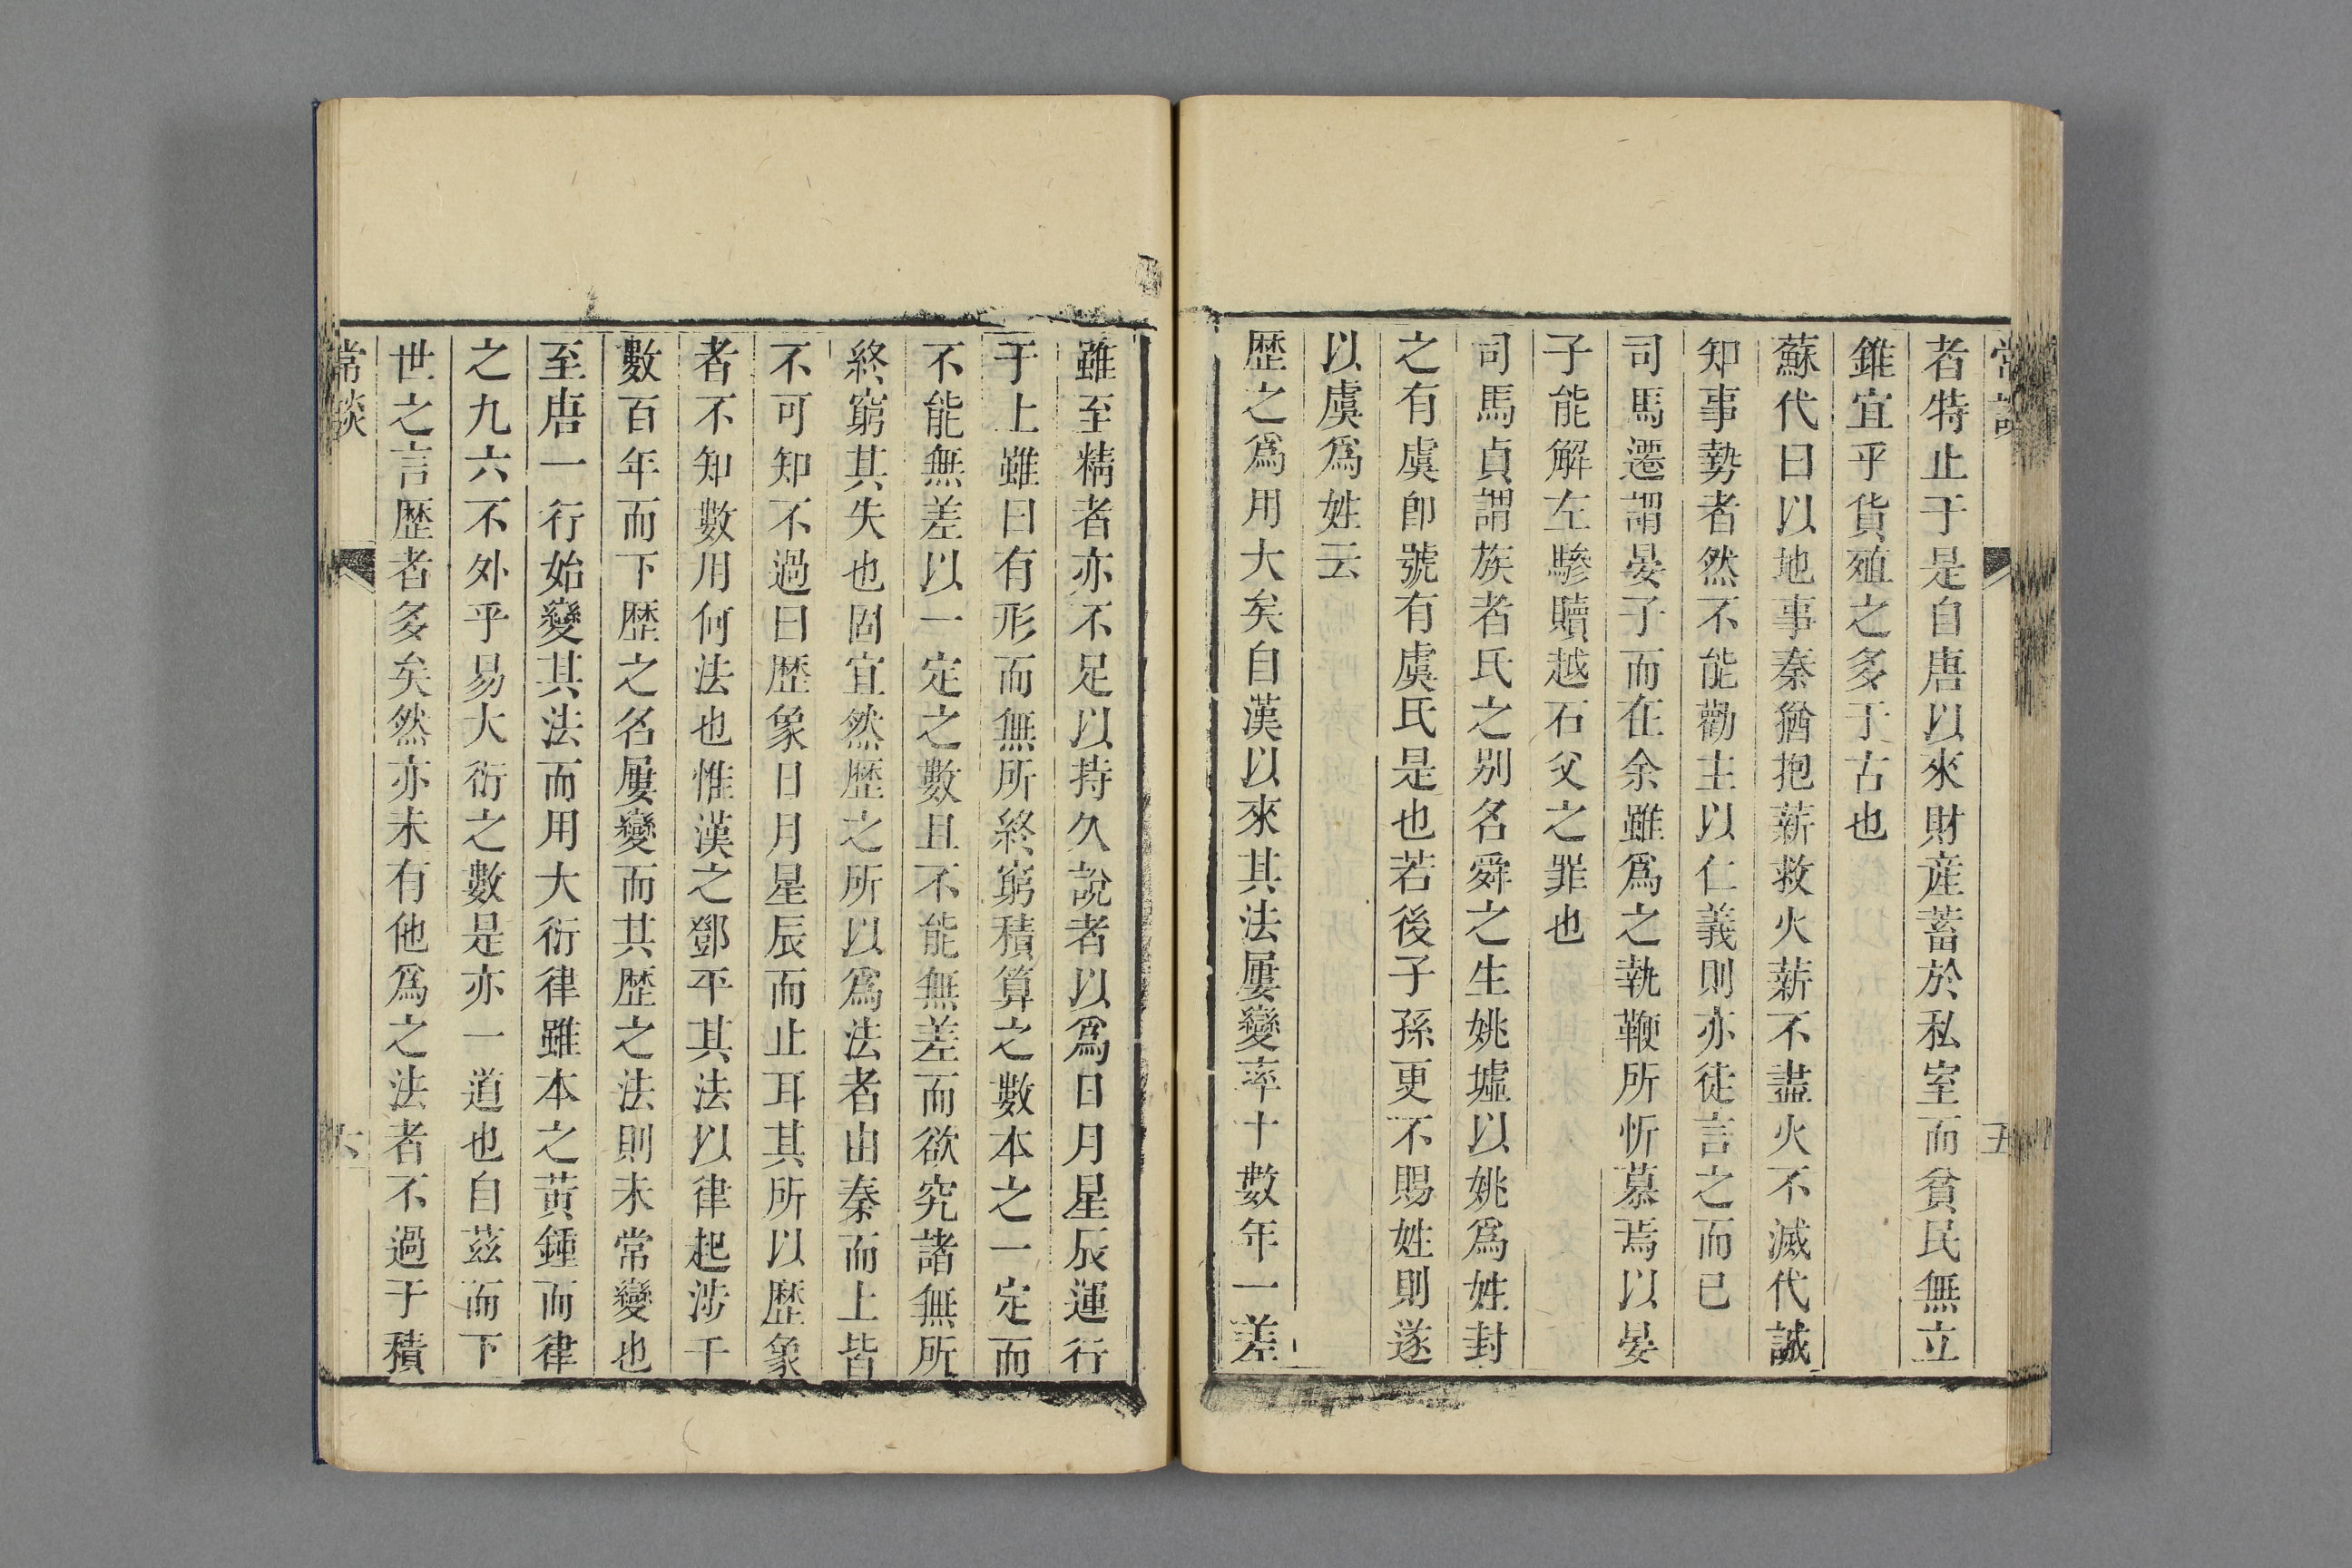 常談
五
者特止于是自唐以來財産蓄於私室而貧民無立
錐宜乎貨殖之多于古也
蘇代曰以地事秦猶抱薪救火薪不盡火不滅代誠
知事勢者然不能勸主以仁義則亦徒言之而已
司馬遷謂晏子而在余雖爲之執鞭所忻慕焉以晏
子能解左驂贖越石父之罪也
司馬貞謂族者氏之别名舜之生姚墟以姚爲姓封
之有虞卽號有虞氏是也若後子孫更不賜姓則遂
以虞爲姓云
歷之爲用大矣自漢以來其法屢變率十數年一差
雖至精者亦不足以持久說者以爲日月星辰運行
于上雖曰有形而無所終窮積算之數本之一定而
不能無差以一定之數且不能無差而欲究諸無所
終窮其失也固宜然歷之所以爲法者由秦而上皆
不可知不過曰歷象日月星辰而止耳其所以歷象
者不知數用何法也惟漢之鄧平其法以律起涉于
數百年而下歷之名屢變而其歷之法則未常變也
至唐一行始變其法而用大衍律雖本之黃鍾而律
之九六不外乎易大衍之數是亦一道也自茲而下
世之言歷者多矣然亦未有他爲之法者不過于積
常談
六